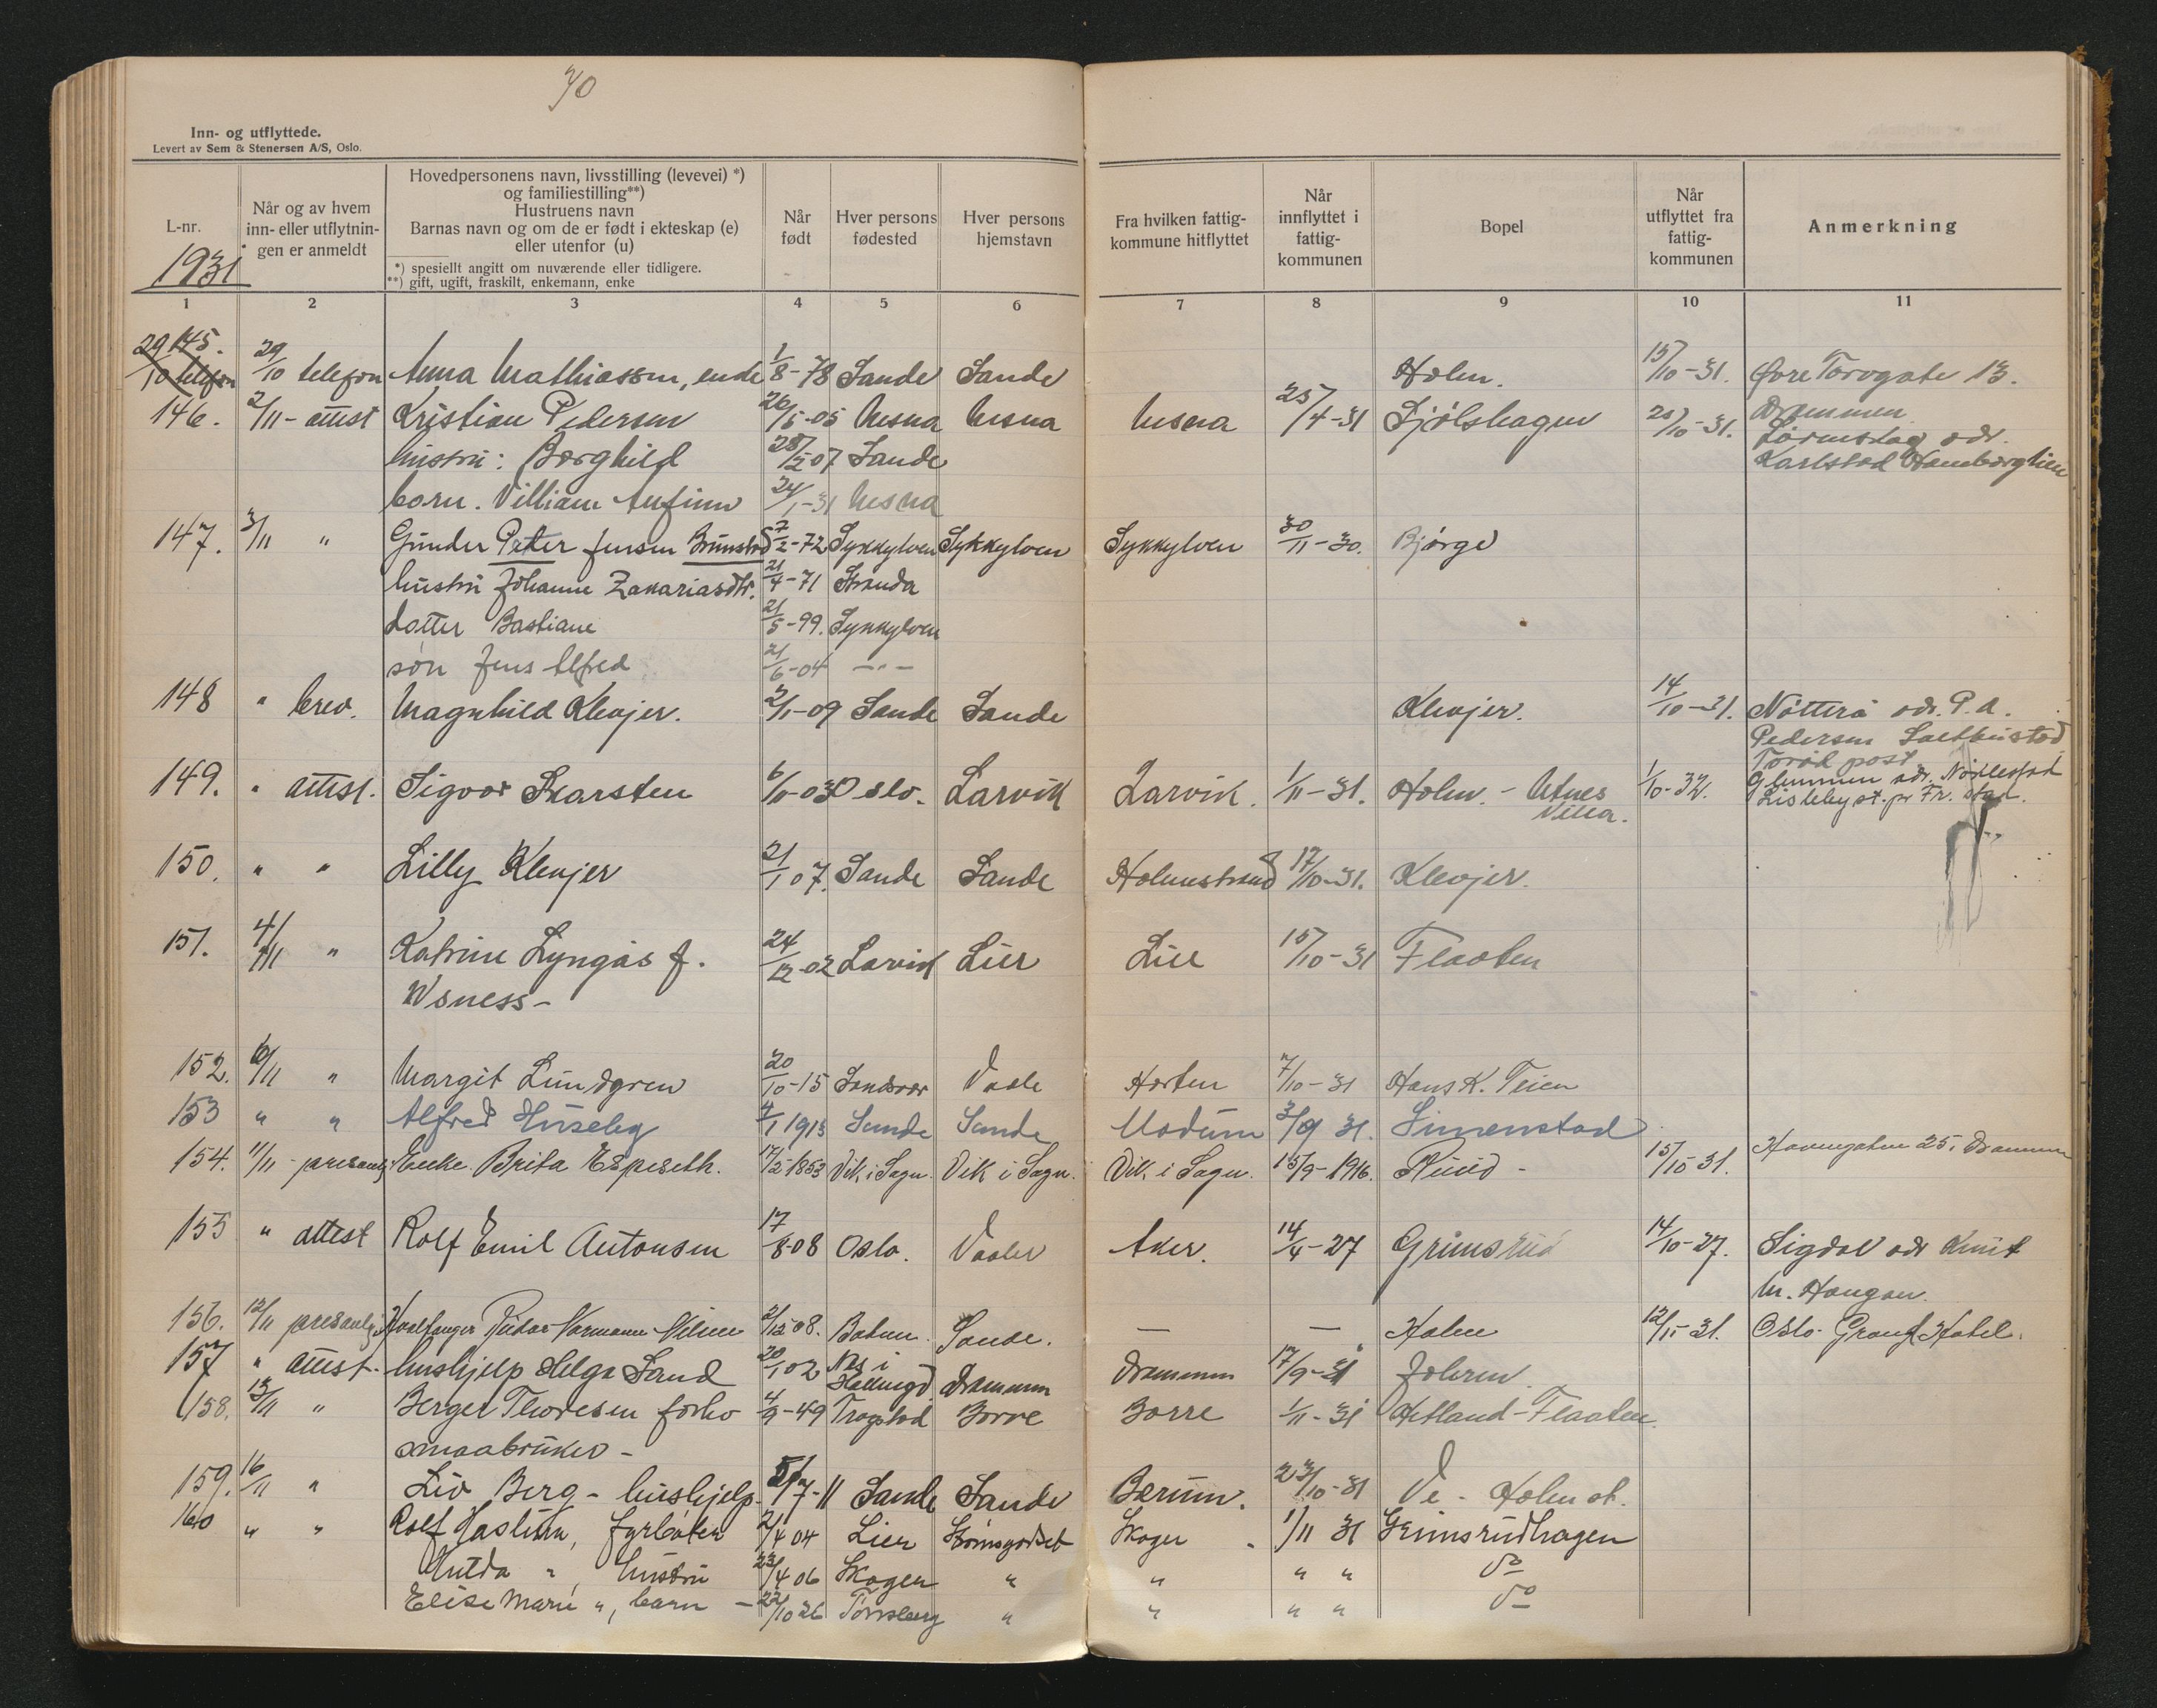 40
Inn- og utflyttede.
Levert av Sem & Stenersen A/S, Oslo.
L-nr.
1931
Når og av hvem
inn- eller utflytnin-
gen er anmeldt
Hovedpersonens navn, livsstilling (levevei) *)
og familiestilling**)
Hustruens navn
Barnas navn og om de er født i ekteskap (e)
eller utenfor (u)
*) spesiellt angitt om nuværende eller tidligere.
**) gift, ugift, fraskilt, enkemann, enke
Når
født
Hver persons
fødested
Hver persons
hjemstavn
Fra hvilken fattig-
kommune hitflyttet
Når
innflyttet i
fattig-
kommunen
Bopel
Når
utflyttet fra
fattig-
kommunen
Anmerkning
1 2 3 4 5 6 7 8 9 10 11
145. 29/10 telefon Anna Mathiassen, enke 1/8-78 Sande Sande Holm. 15/10-31. Øvre Torvgate 13.
Drammen
146. 2/11- attest Kristian Pedersen 26/5-05 Nesna Nesna Nesna 25/4-31 Fjölshagen 25/10-31.
adr.
Karlstad
hustru: Borghild 28/2 07 Sande
barn. Villiam Anfinn 24/1-31 Nesna
147. 3/11 " Gunder Peter Jensen Brunstad 7/2-72 Sykkylven Sykkylven Sykkylven 30/11-30. Bjørge
hustru Johanne Zakariasdtr. 21/4-71 Stranda
dotter Bastiane 21/5-99. Sykkylven
søn Jens Alfred 21/6-04 -"-
148 " brev. Magnhild Klevjer. 2/11-09 Sande Sande Klevjer. 14/10-31. Nøtterø adr. P. A.
Pedersen
post
149. " attest. Sigvor Skarsten 6/11-03 Oslo. Larvik Larvik. 1/11-31. Holm. - Utnes 1/10-32. Glemmen adr.
Villa. Lisleby st. pr Fr. stad.
150. " " Lilly Klevjer 21/1 07. Sande Sande Holmestrand 17/10-31. Klevjer.
151. 4/11 " Katrine Lyngås f. 24/12-02 Larvik Lier Lier 15/10-31 Flaaten
Wsness-
152. 10/11 " Margit Lundgren 20/10-15 Sandsvær Vaale Horten 7/10-31 Hans K. Teien
153 " " Alfred Huseby 4/1 1913 Sande Sande Modum 3/9 31. Simenstad
154. 11/11- presanlig Enke Brita Espeseth. 17/2-1853 Vik i Sogn. Vik i Sogn. Vik i Sogn. 15/9-1916. Ruud - 15/10-31. Havnegaten 25, Drammen
155 " attest Rolf Emil Antonsen 17/8-08 Oslo. Vaaler Aker. 14/4-27 Grimsrud 14/10-27. Sigdal adr Knut
M. Haugan.
156. 12/11 presanlig Hvalfanger Vilmer 2/12-08. Botne. Sande. - - Holm 12/11-31. Oslo. Grand Hotel.
157 " attest. hushjelp Helga Sand 20/1 02 Nes i
Hallingd Drammen Drammen 17/9-31 Joleren.
158. 13/11 " Berger Thoresen forhv 4/9-49 Trøgstad Borre Borre 1/11-31 Hetland-Flaaten
smaabruker-
159. 16/11 " Liv Berg- hushjelp. 5/7-11 Sande Sande Bærum. 23/10-31 Ve- Holm st.
160 " " Rolf Haslum, fyrbøter 2/4 04 Lier Strømsgodset Skoger 1/11 31 Grimsrudhagen
Hulda ", hustru 23/4 06 Skoger " " " " do
Elise Marie ", barn - 22/10 26 Tønsberg " " " " do